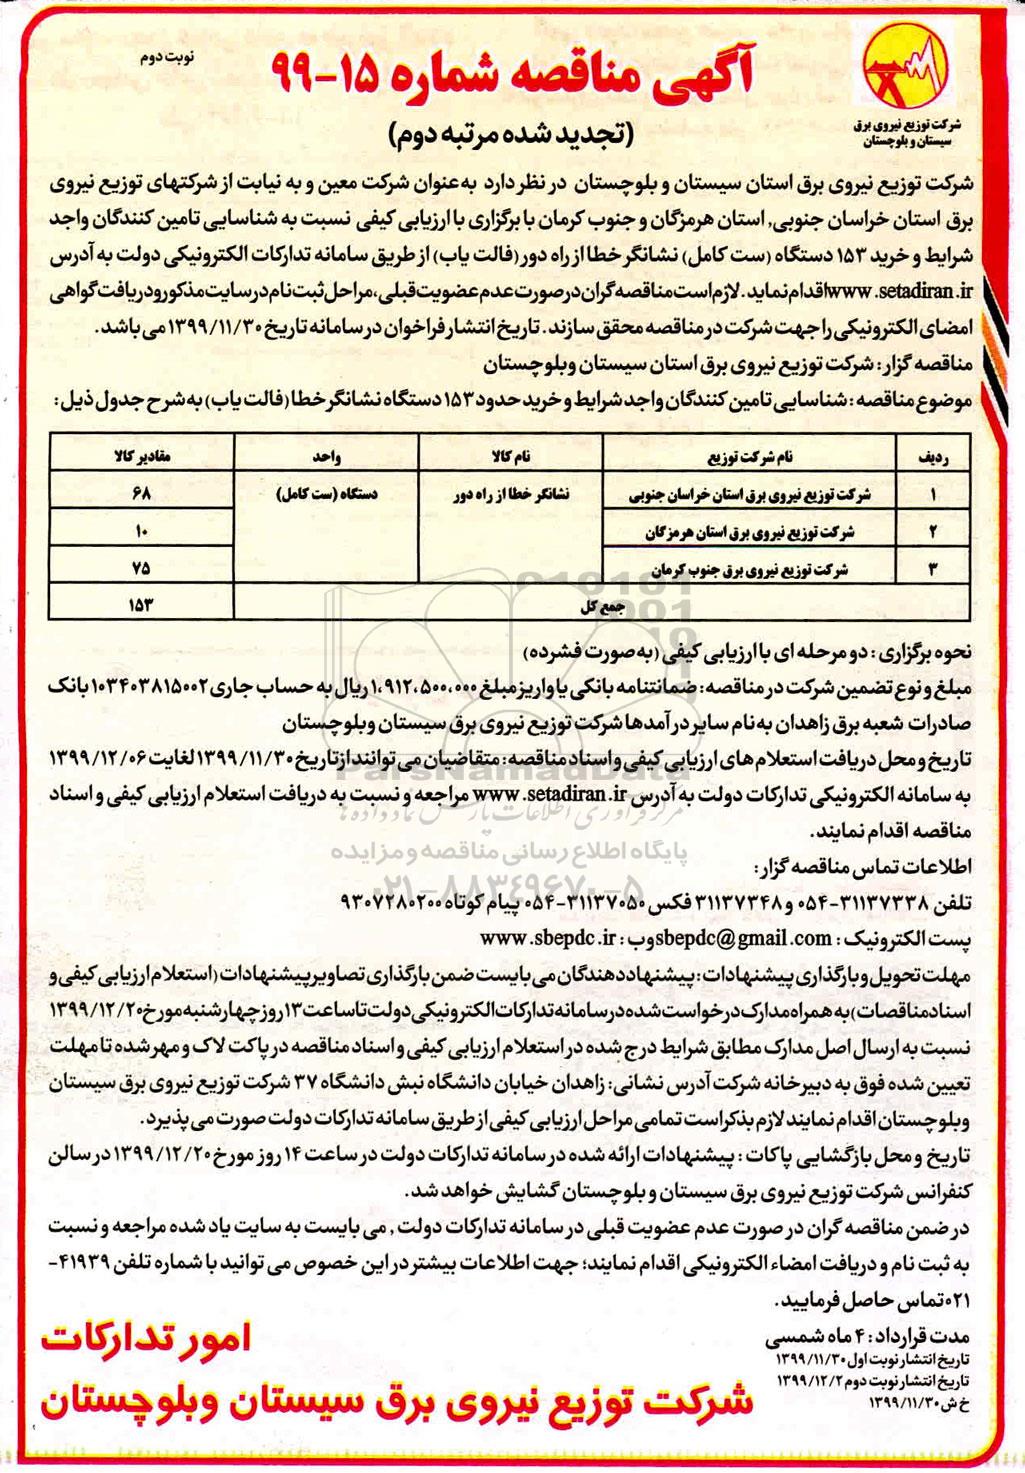 شرکت توزیع نیروی برق
سیستان و بلوچستان
نوبت دوم
آگهی مناقصه شماره ۱۵-۹۹
(تجدید شده مرتبه دوم)
شرکت توزیع نیروی برق استان سیستان و بلوچستان در نظر دارد به‌عنوان شرکت معین و به نیابت از شرکتهای توزیع نیروی
برق استان خراسان جنوبی, استان هرمزگان و جنوب کرمان با برگزاری با ارزیابی کیفی نسبت به شناسایی تامین کنندگان واجد
شرایط و خرید ۱۵۳ دستگاه (ست کامل) نشانگر خطا از راه دور (فالت یاب) از طریق سامانه تدارکات الکترونیکی دولت به آدرس
www.setadiran.ir اقدام نماید. لازم است مناقصه گران در صورت عدم عضویت قبلی، مراحل ثبت نام در سایت مذکور و دریافت گواهی
امضای الکترونیکی را جهت شرکت در مناقصه محقق سازند. تاریخ انتشار فراخوان در سامانه تاریخ ۱۳۹۹/۱۱/۳۰ می باشد.
مناقصه گزار: شرکت توزیع نیروی برق استان سیستان وبلوچستان
موضوع مناقصه: شناسایی تامین کنندگان واجد شرایط و خرید حدود ۱۵۳ دستگاه نشانگر خطا (فالت یاب) به شرح جدول ذیل:
ردیف نام شرکت توزیع نام کالا واحد مقادیر کالا
۱ شرکت توزیع نیروی برق استان خراسان جنوبی نشانگر خطا از راه دور دستگاه (ست کامل) ۶۸
۲ شرکت توزیع نیروی برق استان هرمزگان ۱۰
۳ شرکت توزیع نیروی برق جنوب کرمان ۷۵
جمع کل ۱۵۳
نحوه برگزاری: دو مرحله ای با ارزیابی کیفی (به صورت فشرده)
مبلغ و نوع تضمین شرکت در مناقصه: ضمانتنامه بانکی یا واریز مبلغ ۱,۹۱۲,۵۰۰,۰۰۰ ریال به حساب جاری ۱۰۳۴۰۳۸۱۵۰۰۲ بانک
صادرات شعبه برق زاهدان به نام سایر درآمدها شرکت توزیع نیروی برق سیستان وبلوچستان
تاریخ و محل دریافت استعلام های ارزیابی کیفی و اسناد مناقصه: متقاضیان می توانند از تاریخ ۱۳۹۹/۱۱/۳۰ لغایت ۱۳۹۹/۱۲/۰۶
به سامانه الکترونیکی تدارکات دولت به آدرس www.setadiran.ir مراجعه و نسبت به دریافت استعلام ارزیابی کیفی و اسناد
مناقصه اقدام نمایند.
اطلاعات تماس مناقصه گزار:
تلفن ۳۱۱۳۷۳۳۸-۰۵۴ و ۳۱۱۳۷۳۴۸ فکس ۳۱۱۳۷۰۵۰-۰۵۴ پیام کوتاه ۹۳۰۷۲۸۰۲۰۰
پست الکترونیک: sbepdc@gmail.com وب: www.sbepdc.ir
مهلت تحویل و بارگذاری پیشنهادات: پیشنهاد دهندگان می بایست ضمن بارگذاری تصاویر پیشنهادات (استعلام ارزیابی کیفی و
اسناد مناقصات) به همراه مدارک درخواست شده در سامانه تدارکات الکترونیکی دولت تا ساعت ۱۳ روز چهارشنبه مورخ ۱۳۹۹/۱۲/۲۰
نسبت به ارسال اصل مدارک مطابق شرایط درج شده در استعلام ارزیابی کیفی و اسناد مناقصه در پاکت لاک و مهر شده تا مهلت
تعیین شده فوق به دبیرخانه شرکت آدرس نشانی: زاهدان خیابان دانشگاه نبش دانشگاه ۳۷ شرکت توزیع نیروی برق سیستان
وبلوچستان اقدام نمایند لازم بذکر است تمامی مراحل ارزیابی کیفی از طریق سامانه تدارکات دولت صورت می پذیرد.
تاریخ و محل بازگشایی پاکات: پیشنهادات ارائه شده در سامانه تدارکات دولت در ساعت ۱۴ روز مورخ ۱۳۹۹/۱۲/۲۰ در سالن
کنفرانس شرکت توزیع نیروی برق سیستان و بلوچستان گشایش خواهد شد.
در ضمن مناقصه گران در صورت عدم عضویت قبلی در سامانه تدارکات دولت, می بایست به سایت یاد شده مراجعه و نسبت
به ثبت نام و دریافت امضاء الکترونیکی اقدام نمایند؛ جهت اطلاعات بیشتر در این خصوص می توانید با شماره تلفن ۴۱۹۳۹-
۰۲۱ تماس حاصل فرمایید.
مدت قرارداد: ۴ ماه شمسی
تاریخ انتشار نوبت اول ۱۳۹۹/۱۱/۳۰
تاریخ انتشار نوبت دوم ۱۳۹۹/۱۲/۲
خ ش ۱۳۹۹/۱۱/۳۰
امور تدارکات
شرکت توزیع نیروی برق سیستان وبلوچستان
ParsNamadData
مرکز فرآوری اطلاعات پارس نماد داده ها
پایگاه اطلاع رسانی مناقصه و مزایده
۰۲۱-۸۸۳۴۹۶۷۰-۵